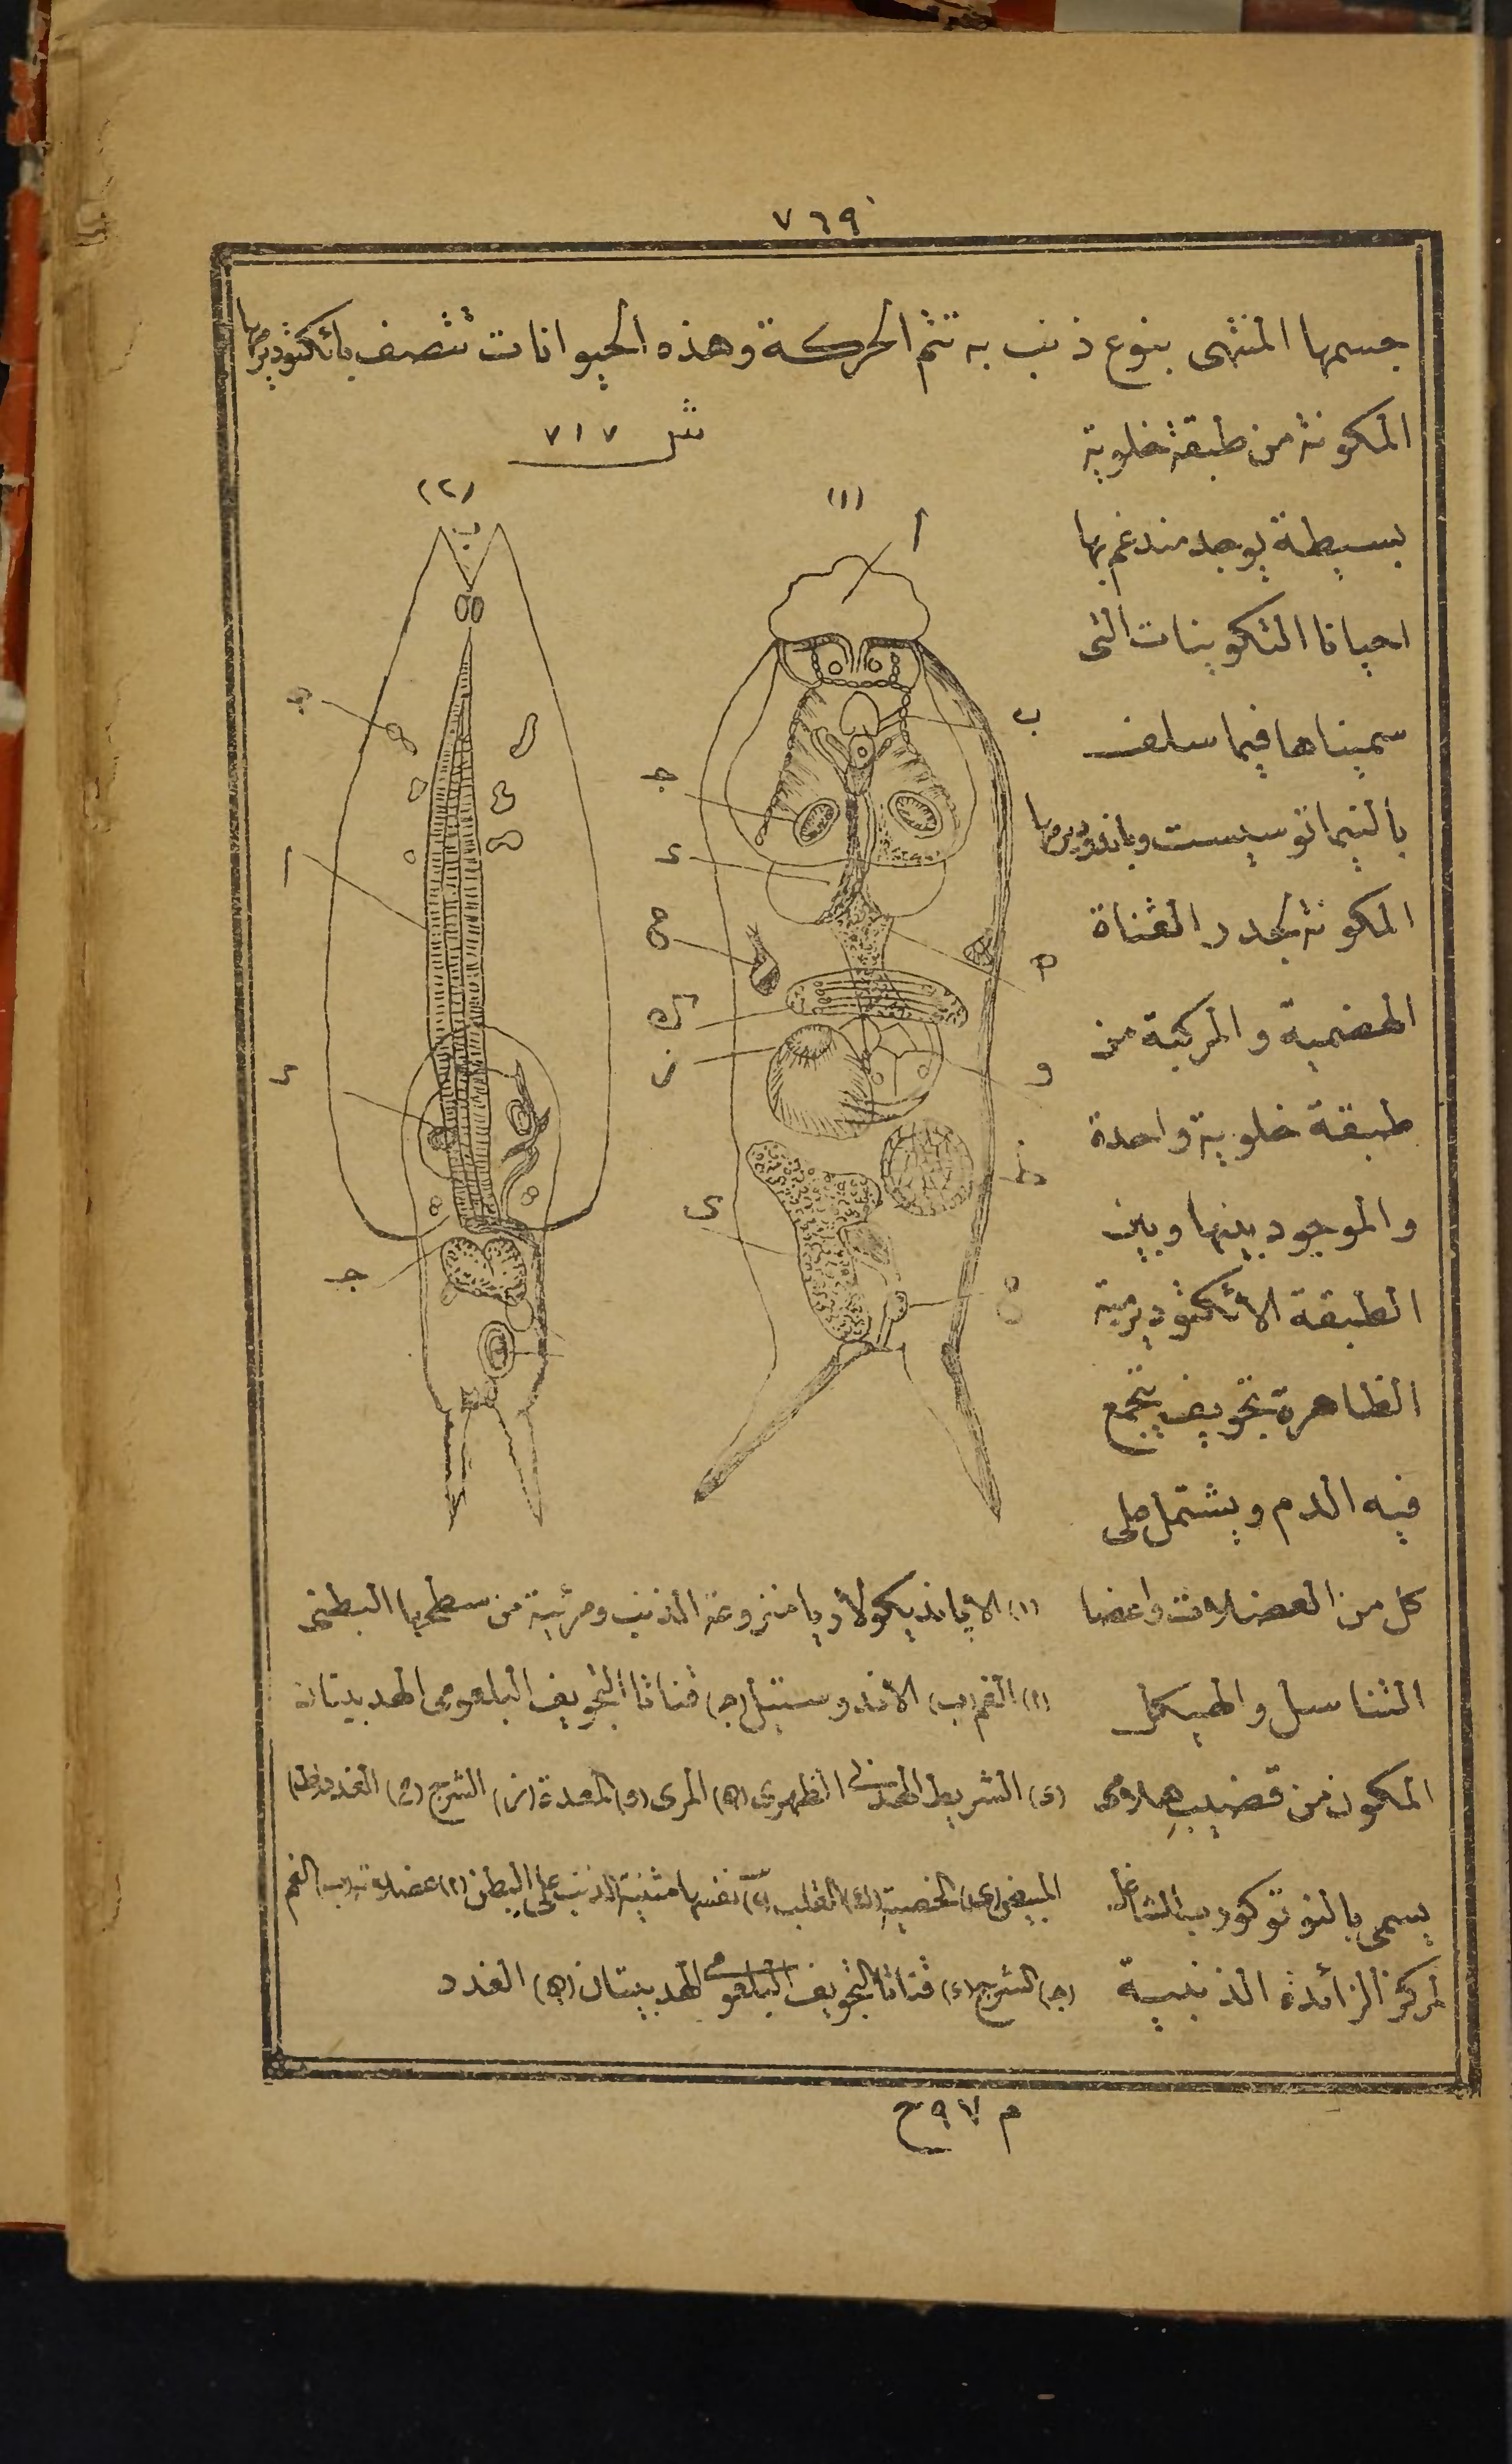 ٧٦٩
جسمها المنتهى بنوع ذنب به تتم الحركة وهذه الحيوانات تتصف باكتوديرمها
المكونة من طبقة خلوية
ش ٧١٧
بسيطة يوجد مندغم بها
احيانا التكوينات التى
سميناها فيما سلف
بالنيماتوسيست وباندوديرمها
المكونة لجدر القناة
الهضمية والمركبة من
طبقة خلوية واحدة
والموجود بينها وبين
الطبقة الاكتوديرمية
الظاهرة تجويف يتجمع
فيه الدم ويشتمل على
كل من العضلات واعضا
التناسل والهيكل
المكون من قضيب هلامى
يسمى بالنوتوكورد الشاغل
لمركز الزائدة الذنبية
(١)
(٢)
أ
ب
ج
د
ه
ح
ك
ز
و
ط
ى
ب
ا
د
ج
(١) الاپاندیكولاريا منزوعة الذنب ومرئية من سطحها البطنى
(ا) الفم (ب) الاندوستيل (ج) قناتا التجويف البلعومى الهدبيتان
(د) الشريط الهدبى الظهرى (ه) المرى (و) المعدة (ز) الشرج (ح) الغدد (ط)
المبيض (ى) الخصية (ك) القلب (٢) نفسها مثنية الذنب على البطن (ا) عضلاته (ب) الفم
(ج) الشرج (د) قناتا التجويف البلعومى الهدبيتان (ه) الغدد
م ٩٧ ح